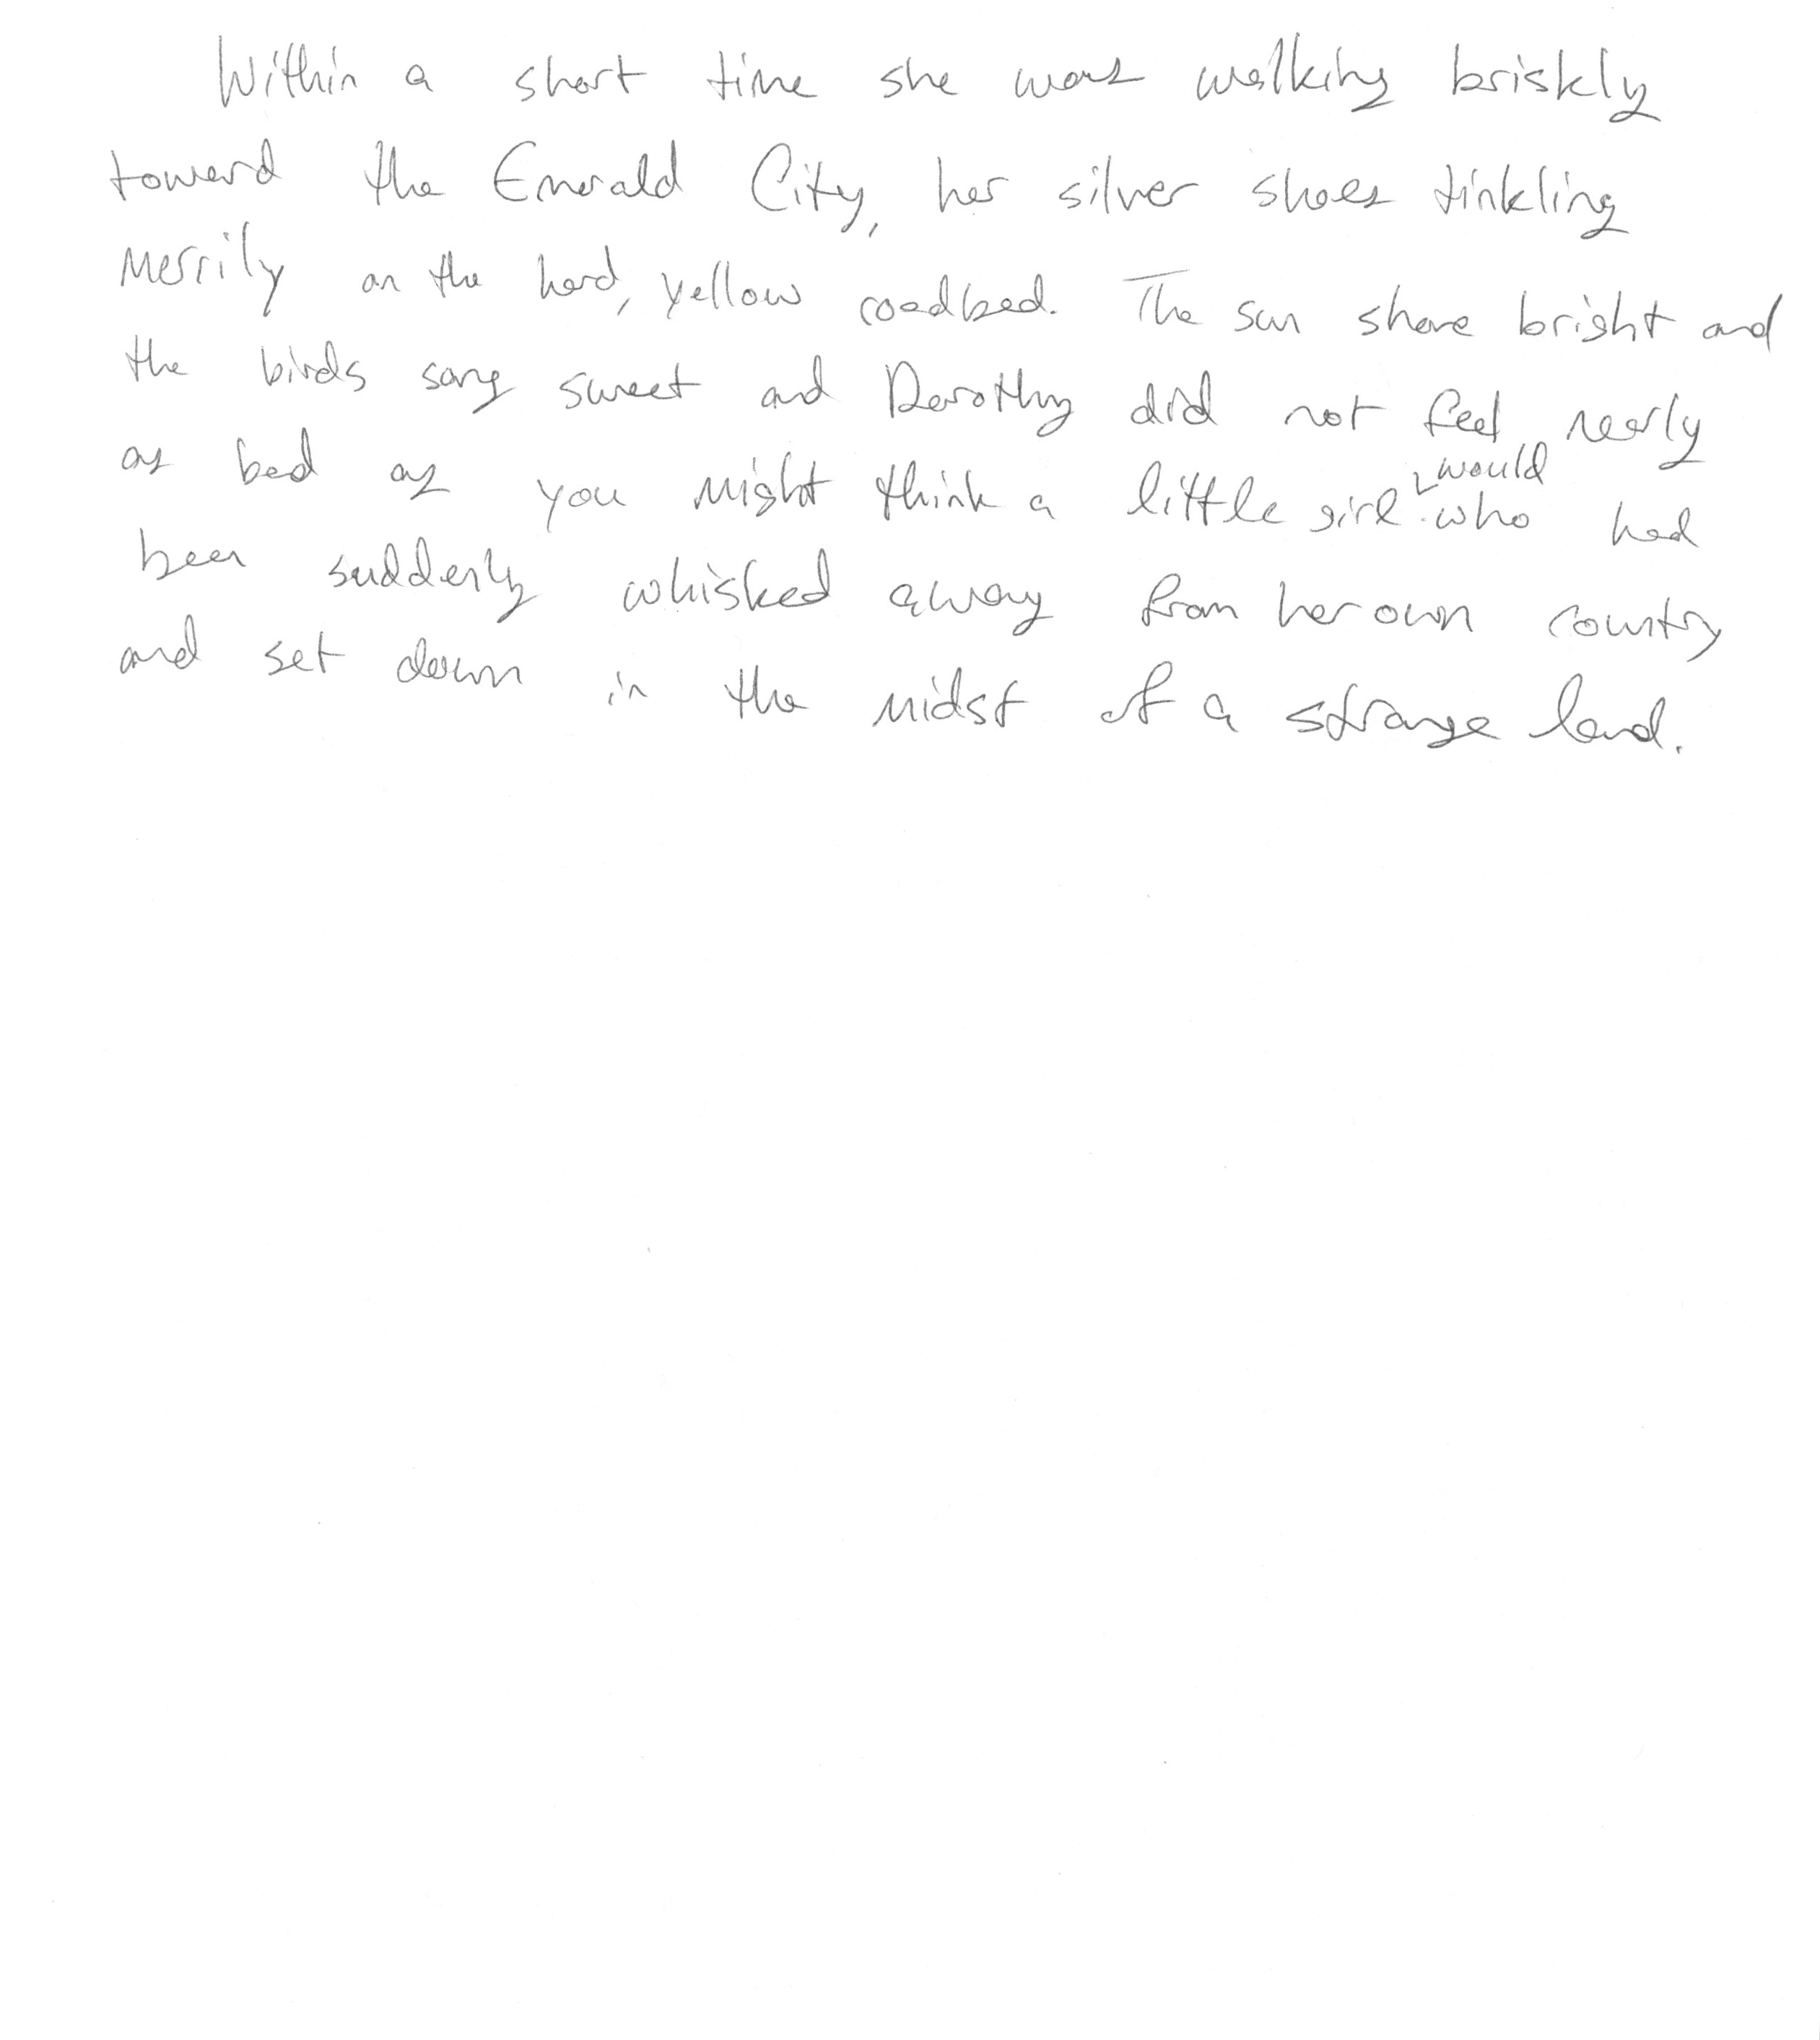 Within a short time she was walking briskly
toward the Emerald City, her silver shoes tinkling
merrily on the hard, yellow roadbed. The sun shone bright and
the birds sang sweet and Dorothy did not feel nearly
as bad as you might think a little girl would who had
been suddenly whisked away from her own country
and set down in the midst of a strange land.